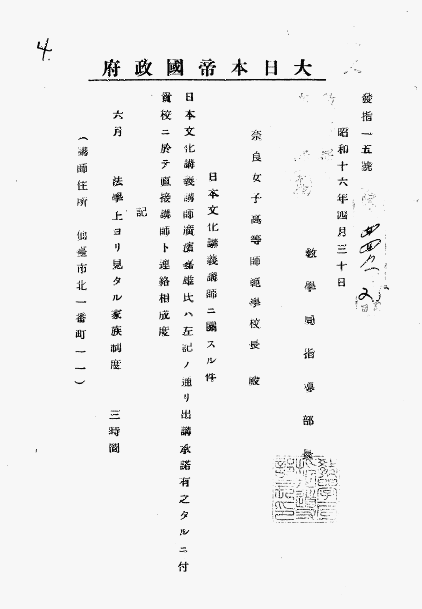 4.
大日本帝國政府
發指一五號
昭和十六年四月三十日
教學局指導部長
奈良女子高等師範學校長 殿
日本文化講義講師ニ關スル件
日本文化講義講師廣濱嘉雄氏ハ左記ノ通リ出講承諾有之タルニ付
貴校ニ於テ直接講師ト連絡相成度
記
六月 法學上ヨリ見タル家族制度 三時間
(講師住所 仙臺市北一番町一一)